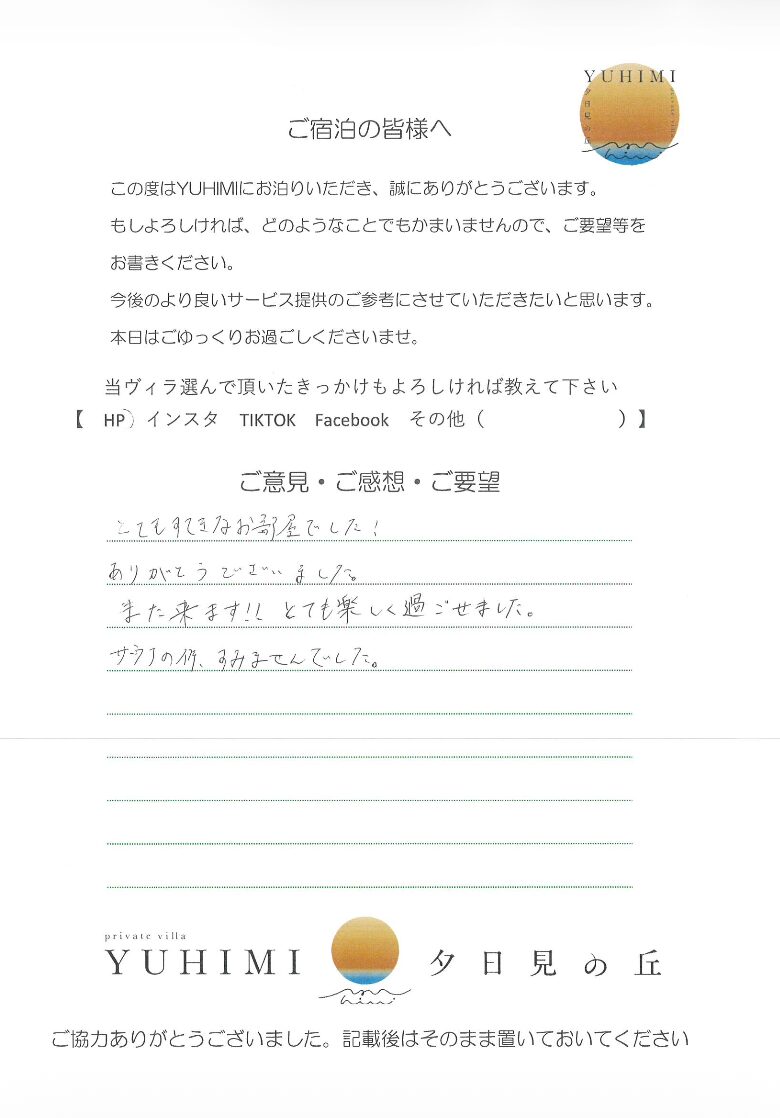 YUHIMI
夕日見の丘
private villa
ご宿泊の皆様へ
この度はYUHIMIにお泊りいただき、誠にありがとうございます。
もしよろしければ、どのようなことでもかまいませんので、ご要望等を
お書きください。
今後のより良いサービス提供のご参考にさせていただきたいと思います。
本日はごゆっくりお過ごしくださいませ。
当ヴィラ選んで頂いたきっかけもよろしければ教えて下さい
【 HP インスタ TIKTOK Facebook その他（ ）】
ご意見・ご感想・ご要望
とてもすてきなお部屋でした！
ありがとうございました。
また来ます!! とても楽しく過ごせました。
サウナの件、すみませんでした。
private villa
YUHIMI 夕日見の丘
ご協力ありがとうございました。記載後はそのまま置いておいてください